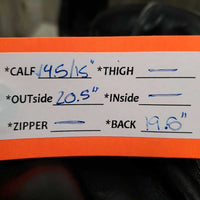 *CALF 14.5/15" *THIGH —
*OUTside 20.5" *INside —
*ZIPPER — *BACK 19.6"